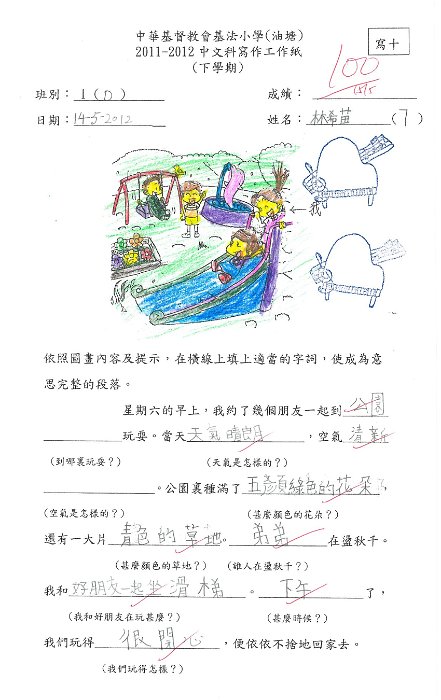 中華基督教會基法小學(油塘)
2011-2012中文科寫作工作紙
(下學期)
寫十
100
班別：1(D)
成績：
日期：14-5-2012
姓名：林希苗(7)
←我
依照圖畫內容及提示，在橫線上填上適當的字詞，使成為意
思完整的段落。
星期六的早上，我約了幾個朋友一起到公園
玩耍。當天天氣晴朗，空氣清新
(到哪裏玩耍？) (天氣是怎樣的？)
。公園裏種滿了五顏綠色的花朵，
(空氣是怎樣的？) (甚麼顏色的花朵？)
還有一大片青色的草地。弟弟在盪秋千。
(甚麼顏色的草地？) (誰人在盪秋千？)
我和好朋友一起坐滑梯。下午了，
(我和好朋友在玩甚麼？) (甚麼時候？)
我們玩得很開心，便依依不捨地回家去。
(我們玩得怎樣？)